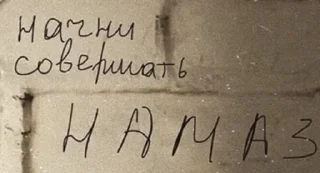 начни
совершать
НАМАЗ